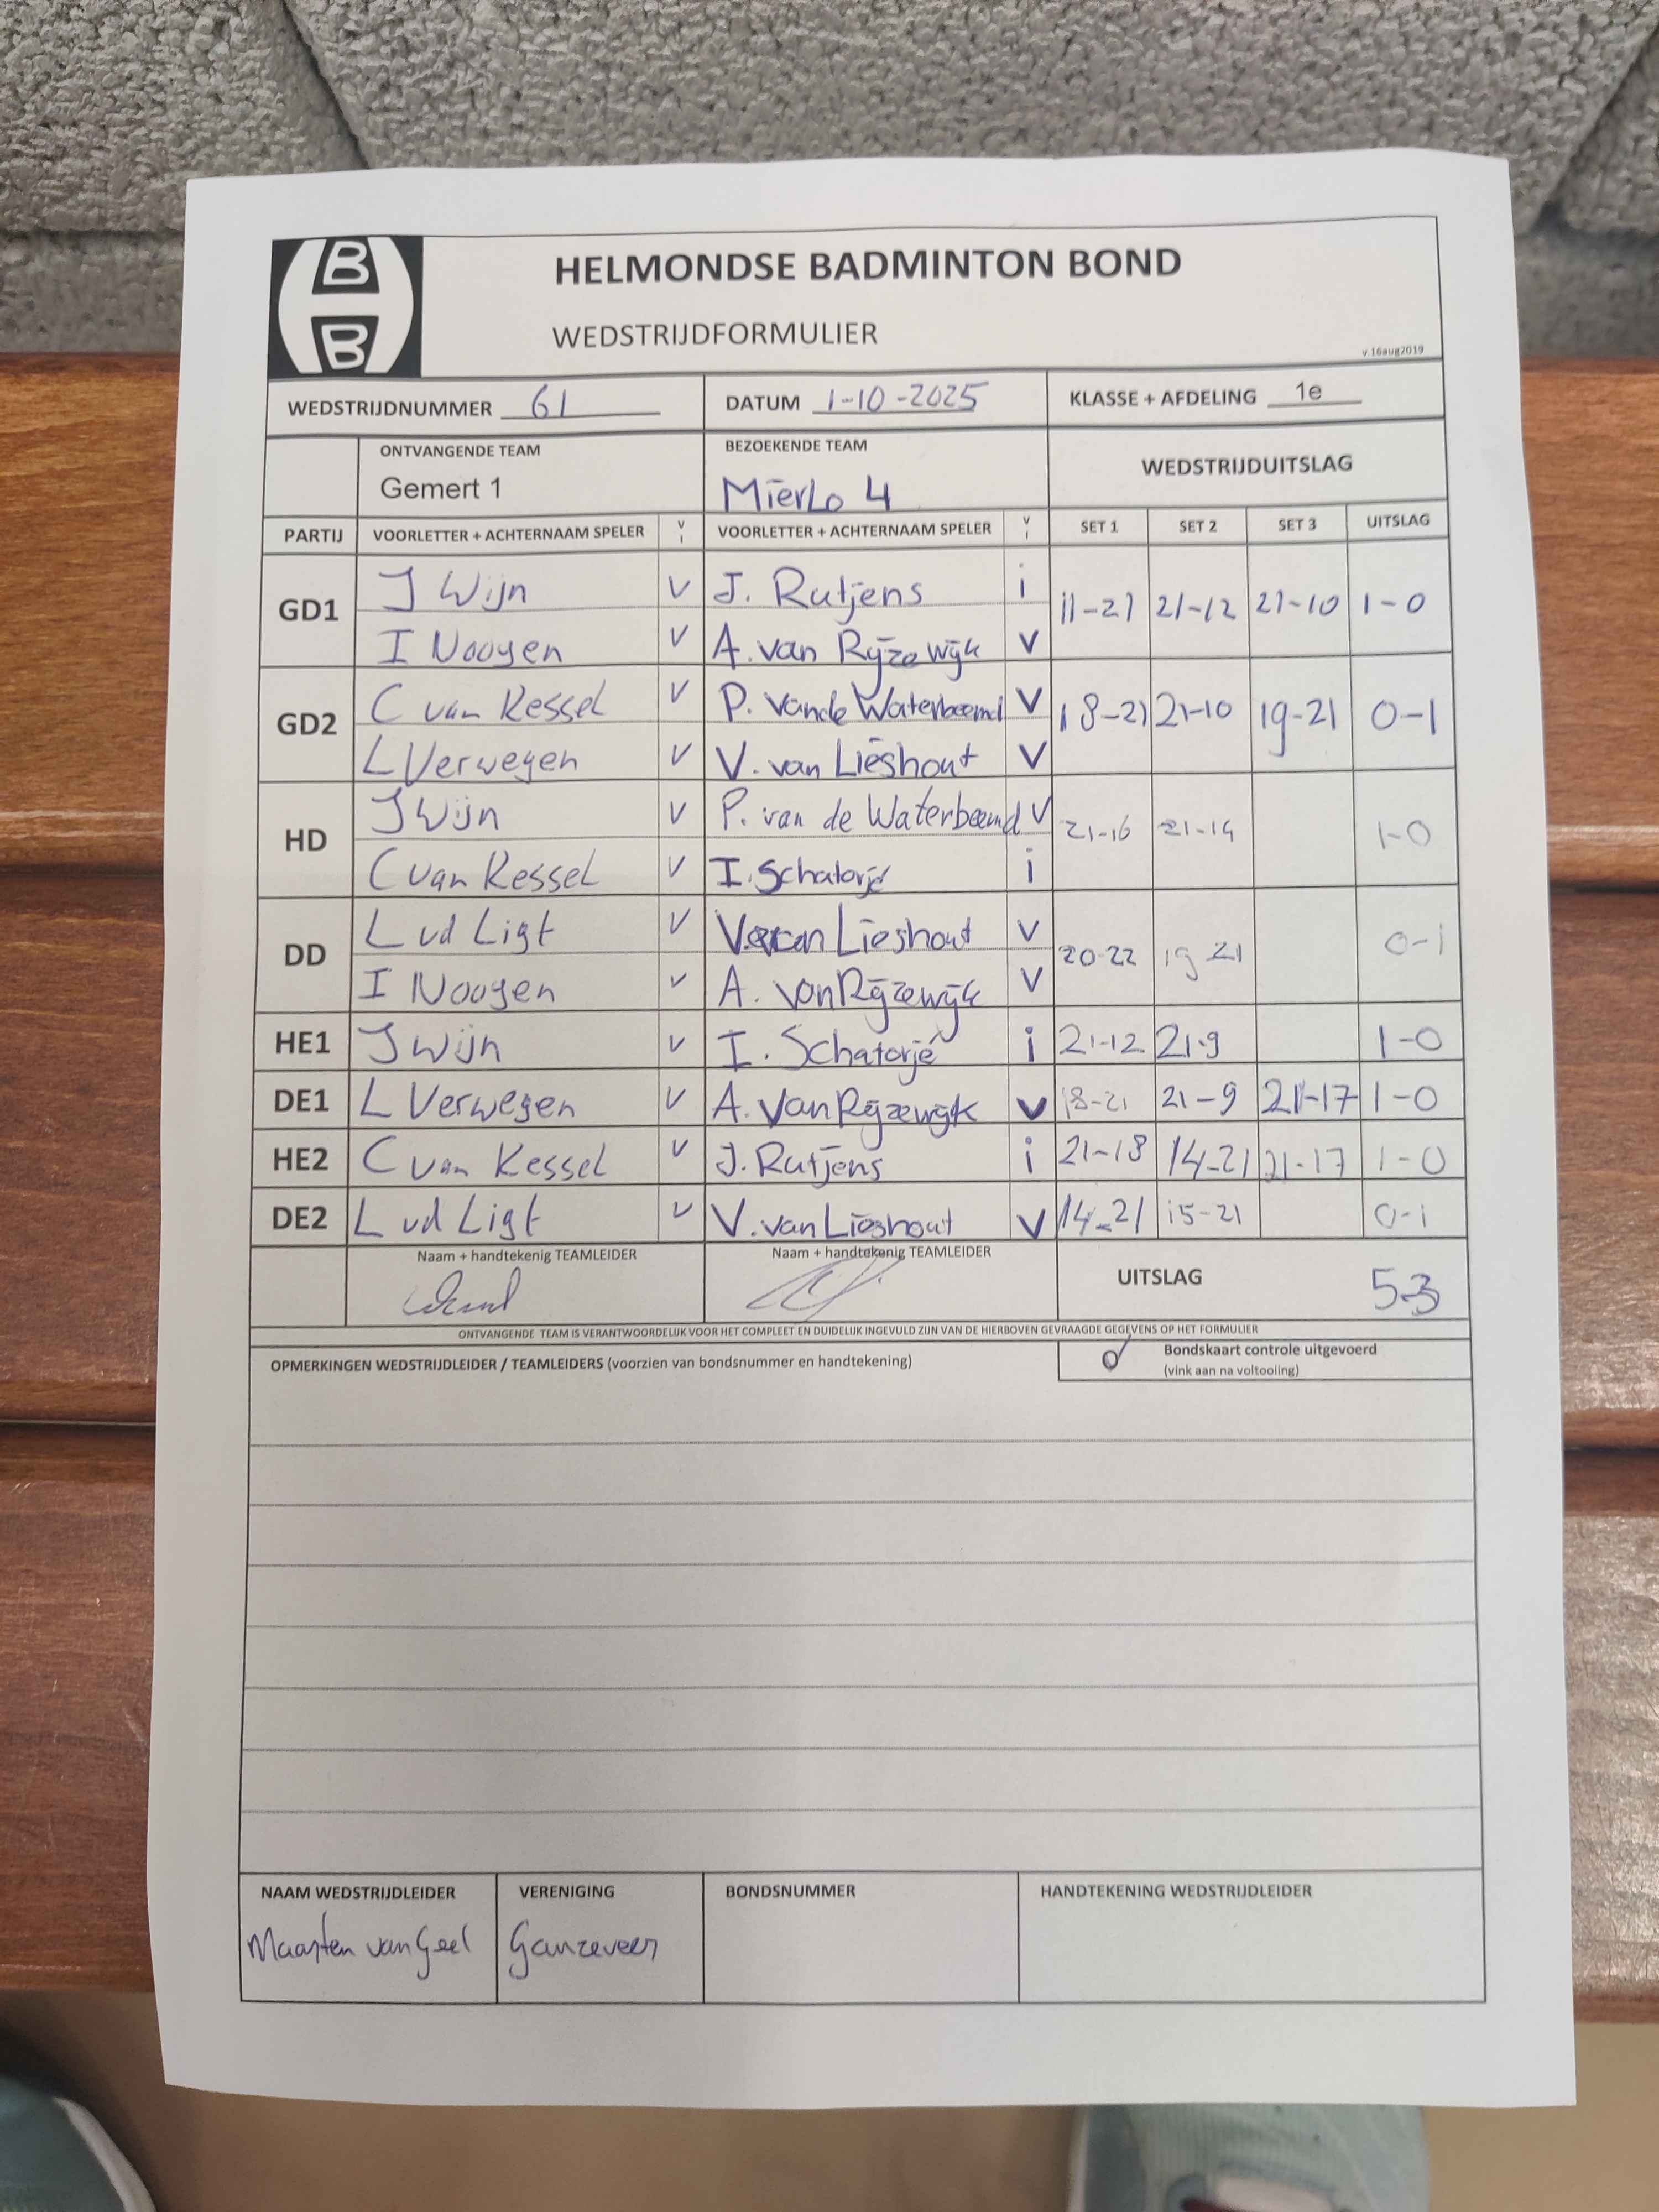 B
B
HELMONDSE BADMINTON BOND
WEDSTRIJDFORMULIER
v.16aug2019
WEDSTRIJDNUMMER 61 DATUM 1-10-2025 KLASSE + AFDELING 1e
ONTVANGENDE TEAM BEZOEKENDE TEAM WEDSTRIJDUITSLAG
Gemert 1 MierLo 4
PARTIJ VOORLETTER + ACHTERNAAM SPELER V I VOORLETTER + ACHTERNAAM SPELER V I SET 1 SET 2 SET 3 UITSLAG
GD1 J Wijn V J. Rutjens i 11-21 21-12 21-10 1-0
I Nooyen V A. van Rijzewijk V
GD2 C van Kessel V P. van de Waterbeemd V 18-21 21-10 19-21 0-1
L Verwegen V V. van Lieshout V
HD J Wijn V P. van de Waterbeemd V 21-16 21-14 1-0
C van Kessel V I. Schatorjé i
DD L vd Ligt V V. van Lieshout V 20-22 19 21 0-1
I Nooyen V A. van Rijzewijk V
HE1 J Wijn V I. Schatorjé i 21-12 21-9 1-0
DE1 L Verwegen V A. van Rijzewijk V 18-21 21-9 21-17 1-0
HE2 C van Kessel V J. Rutjens i 21-18 14-21 21-17 1-0
DE2 L vd Ligt V V. van Lieshout V 14-21 15-21 0-1
Naam + handtekenig TEAMLEIDER Naam + handtekenig TEAMLEIDER
UITSLAG 5-3
ONTVANGENDE TEAM IS VERANTWOORDELIJK VOOR HET COMPLEET EN DUIDELIJK INGEVULD ZIJN VAN DE HIERBOVEN GEVRAAGDE GEGEVENS OP HET FORMULIER
OPMERKINGEN WEDSTRIJDLEIDER / TEAMLEIDERS (voorzien van bondsnummer en handtekening) Bondskaart controle uitgevoerd
(vink aan na voltooiing)
NAAM WEDSTRIJDLEIDER VERENIGING BONDSNUMMER HANDTEKENING WEDSTRIJDLEIDER
Maarten van Geel Ganzeveer